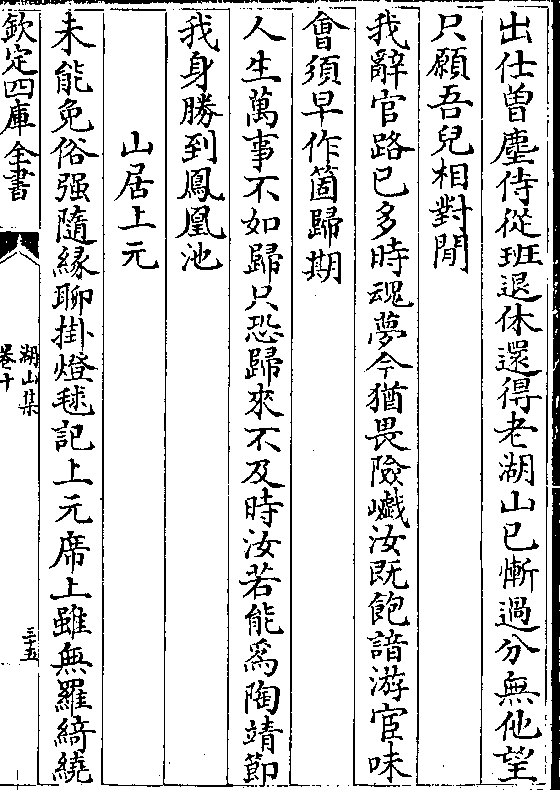 出仕曽塵侍從班退休還得老湖山已慚過分無他望
只願吾兒相對閒
我辭官路已多時魂夢今猶畏險巇汝既飽諳游宦味
會須早作箇歸期
人生萬事不如歸只恐歸來不及時汝若能爲陶靖節
我身勝到鳳凰池
山居上元
未能免俗强隨緣聊掛燈毬記上元席上雖無羅綺繞
欽定四庫全書
湖山集
卷十
三十五